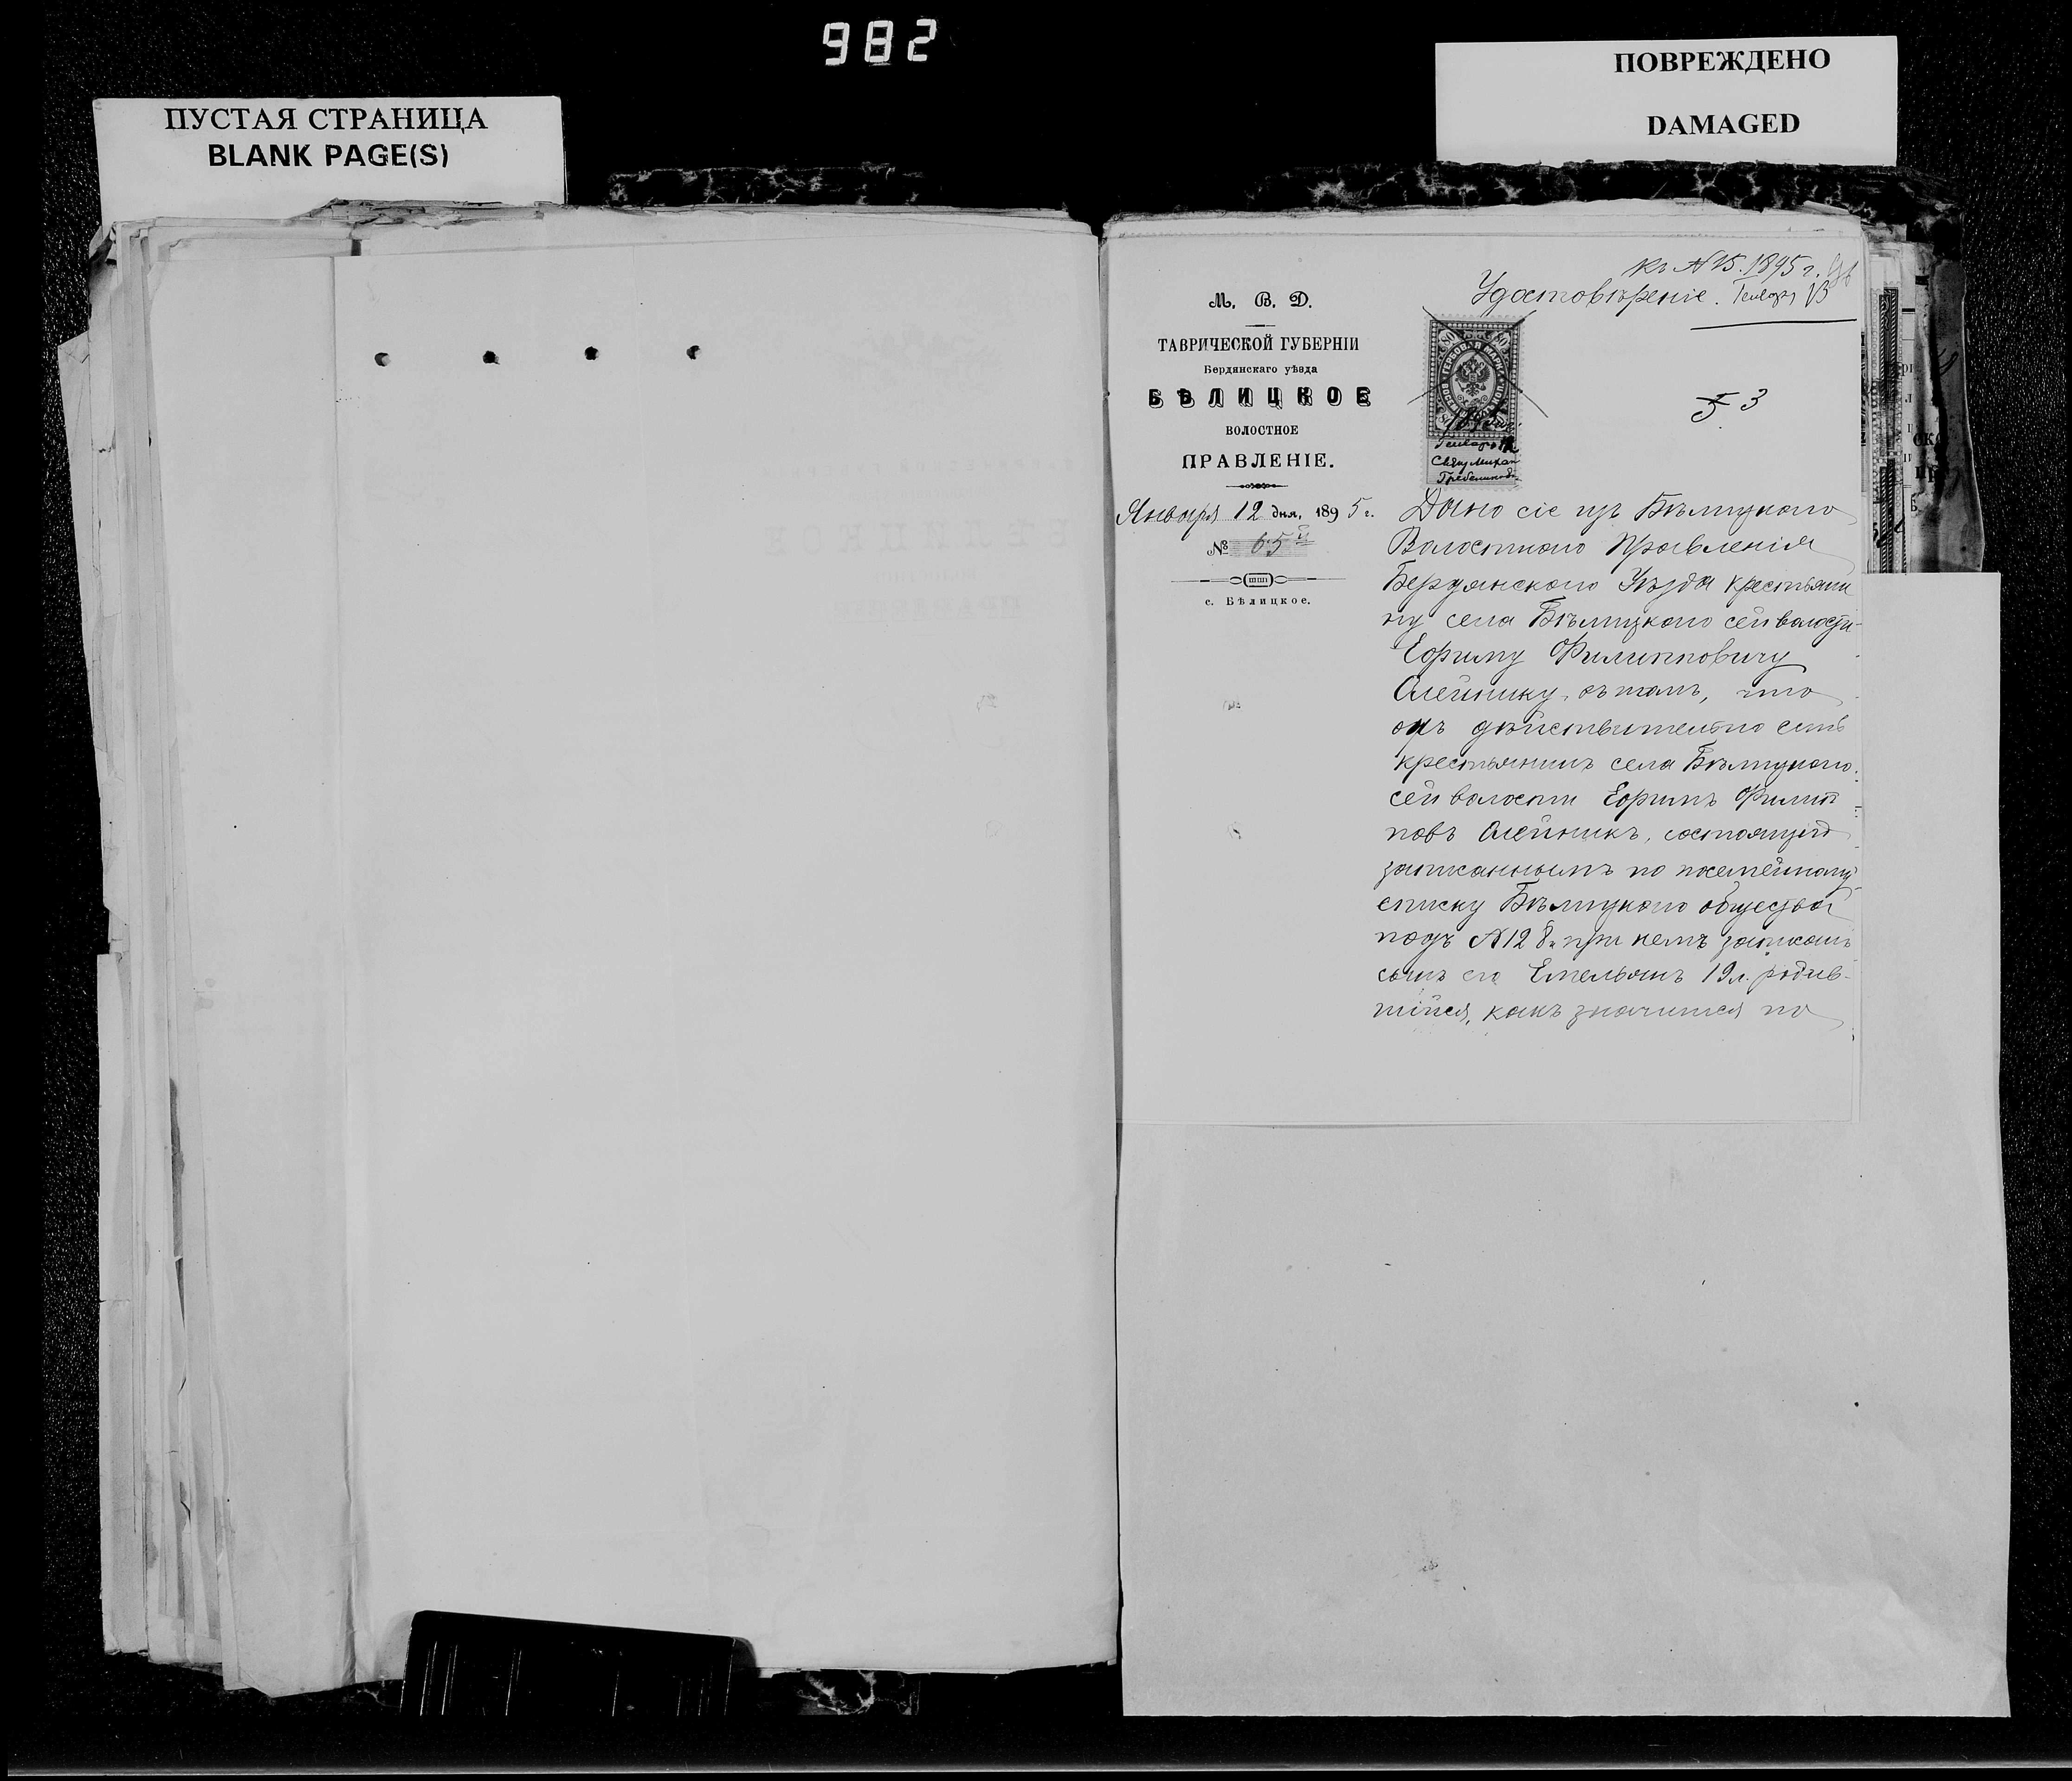 982
ПУСТАЯ СТРАНИЦА
BLANK PAGE(S)
ПОВРЕЖДЕНО
DAMAGED
къ №15. 1895 г.
Удостовѣреніе. Генваря 13
М. В. Д.
ТАВРИЧЕСКОЙ ГУБЕРНІИ
Бердянскаго уѣзда
БѢЛИЦКОЕ
ВОЛОСТНОЕ
ПРАВЛЕНІЕ.
Января 12 дня, 1895 г.
№ 65
с. Бѣлицкое.
80 80
ГЕРБОВАЯ МАРКА
Генваря 12
3
Дано сіе изъ Бѣлицкаго
Волостного Правленія
Бердянскаго Уѣзда крестьяни
ну села Бѣлицкаго сей волости
Ефиму Филипповичу
Олейнику, въ томъ, что
онъ дѣйствительно есть
крестьянинъ села Бѣлицкаго
сей волости Ефимъ Филип
повъ Олейникъ, состоящій
записаннымъ по посемейному
списку Бѣлицкаго общества
подъ №128. при немъ записанъ
сынъ его Емельянъ 19 л. родив-
шійся, какъ значится по